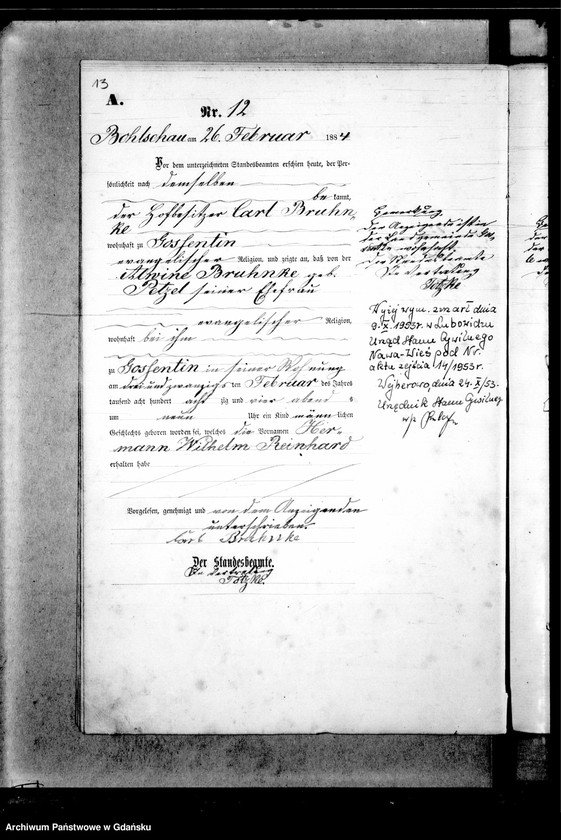 13
A.
Nr. 12
Bohlschau am 26. Februar 1884
Vor dem unterzeichneten Standesbeamten erschien heute, der Per-
sönlichkeit nach demselben
be kannt,
der Hofbesitzer Carl Bruhn-
ke
wohnhaft zu Gossentin
evangelischer Religion, und zeigte an, daß von der
Alwine Bruhnke geb.
Petzel seiner Ehefrau
evangelischer Religion,
wohnhaft bei ihm
zu Gossentin in seiner Wohnung
am dreiundzwanzigsten Februar des Jahres
tausend acht hundert acht zig und vier abend s
um neun Uhr ein Kind männ lichen
Geschlechts geboren worden sei, welches die Vornamen Her-
mann Wilhelm Reinhard
erhalten habe
Vorgelesen, genehmigt und von dem Anzeigenden
unterschrieben.
Carl Bruhnke
Der Standesbeamte.
In Vertretung
Totzke.
Bemerkung
Der Anzeigende ist in
der Landgemeinde
wohnhaft.
Der Standesbeamte
In Vertretung
Totzke
Wyżej wym. zmarł dnia
9.X.1953r. w Luboxichu
Urząd Stanu Cywilnego
Nowa-Wieś pod Nr.
aktu zejścia 14/1953r.
Wejherowo, dnia 24.X/53.
Urzędnik Stanu Cywilnego
w/z
Archiwum Państwowe w Gdańsku